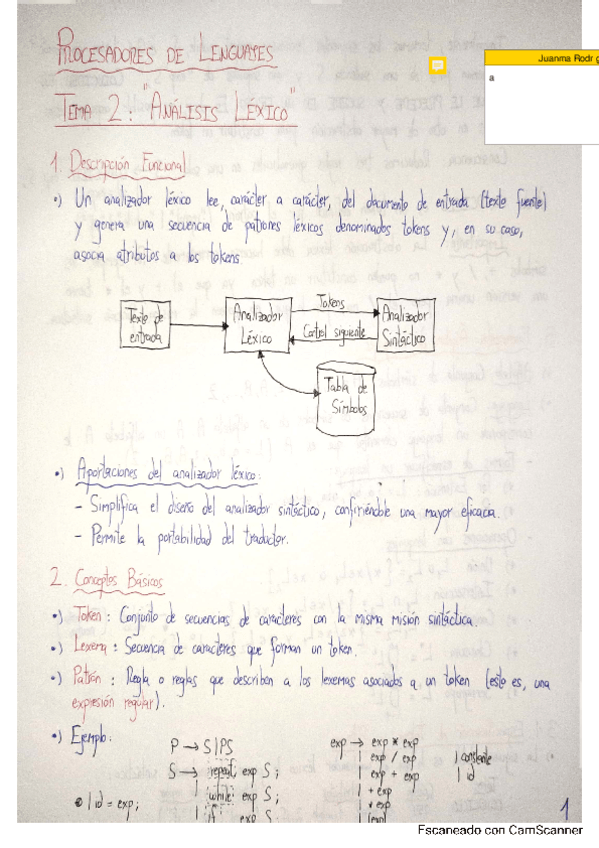 PROCESADORES DE LENGUAJES
TEMA 2: "ANÁLISIS LÉXICO"
Juanma Rodríg
a
1. Descripción Funcional
•) Un analizador léxico lee, carácter a carácter, del documento de entrada (texto fuente)
y genera una secuencia de patrones léxicos denominados tokens y, en su caso,
asocia atributos a los tokens.
Texto de entrada
Analizador Léxico
Tokens
Control siguiente
Analizador Sintáctico
Tabla de Símbolos
•) Aportaciones del analizador léxico:
- Simplifica el diseño del analizador sintáctico, confiriéndole una mayor eficacia.
- Permite la portabilidad del traductor.
2. Conceptos Básicos
•) Token: Conjunto de secuencias de caracteres con la misma misión sintáctica.
•) Lexema: Secuencia de caracteres que forman un token.
•) Patrón: Regla o reglas que describen a los lexemas asociados a un token (esto es, una
expresión regular).
•) Ejemplo:
P → S | PS
S → repeat exp S;
| while exp S;
| id = exp;
exp → exp * exp
| exp / exp
| exp + exp
| + exp
| * exp
| constante
| id
1
Escaneado con CamScanner